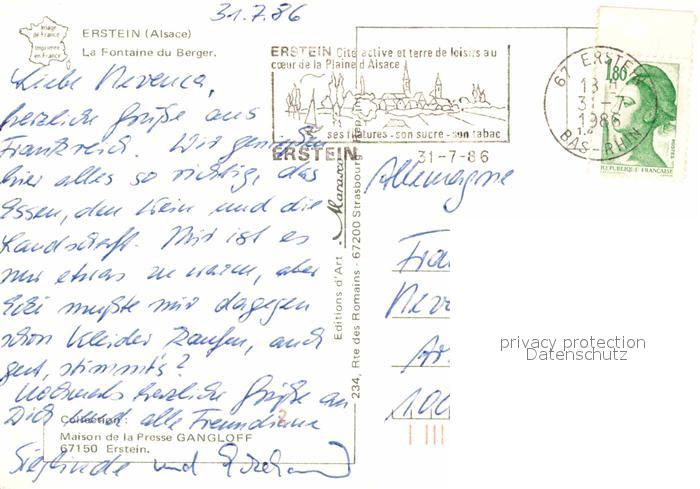 31.7.86
Image de France
Imprimée en France
ERSTEIN (Alsace)
La Fontaine du Berger.
Liebe Nevenca,
herzliche Grüße aus
Frankreich. Wir genießen
hier alles so richtig, das
Essen, den Wein und die
Landschaft. Mir ist es
nur etwas zu warm, aber
mußte mir dagegen
schon Kleider kaufen, auch
gut, stimmt's?
Nochmals herzliche Grüße an
Dich und alle
Sieglinde und
Collection :
Maison de la Presse GANGLOFF
67150 Erstein.
Editions d'Art
234, Rte des Romains - 67200 Strasbourg
ERSTEIN Cité active et terre de loisirs au
cœur de la Plaine d'Alsace
ses filatures - son sucre - son tabac
ERSTEIN
31-7-86
67 ERSTEIN
13 H
31-7
1986
BAS-RHIN
1,80
POSTES
REPUBLIQUE FRANÇAISE
Allemagne
Fra
Neve
privacy protection
Datenschutz